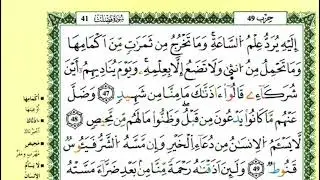 حزب 49
سورة فصلت 41
إِلَيْهِ يُرَدُّ عِلْمُ السَّاعَةِ وَمَا تَخْرُجُ مِن ثَمَرَاتٍ مِّنْ أَكْمَامِهَا
وَمَا تَحْمِلُ مِنْ أُنثَىٰ وَلَا تَضَعُ إِلَّا بِعِلْمِهِ وَيَوْمَ يُنَادِيهِمْ أَيْنَ
شُرَكَاءِي قَالُوا ءَاذَنَّاكَ مَا مِنَّا مِن شَهِيدٍ 47 وَضَلَّ
عَنْهُم مَّا كَانُوا يَدْعُونَ مِن قَبْلُ وَظَنُّوا مَا لَهُم مِّن مَّحِيصٍ 48
لَّا يَسْـَٔمُ الْإِنسَانُ مِن دُعَاءِ الْخَيْرِ وَإِن مَّسَّهُ الشَّرُّ فَيَـُٔوسٌ
قَنُوطٌ 49 وَلَئِنْ أَذَقْنَاهُ رَحْمَةً مِّنَّا مِن بَعْدِ ضَرَّاءَ مَسَّتْهُ
أكمامها
محيص